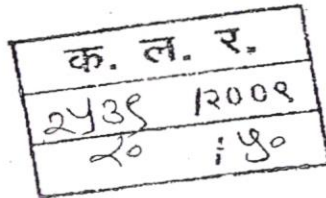 क. ल. र.
२५३९ /२००९
२० / ५०